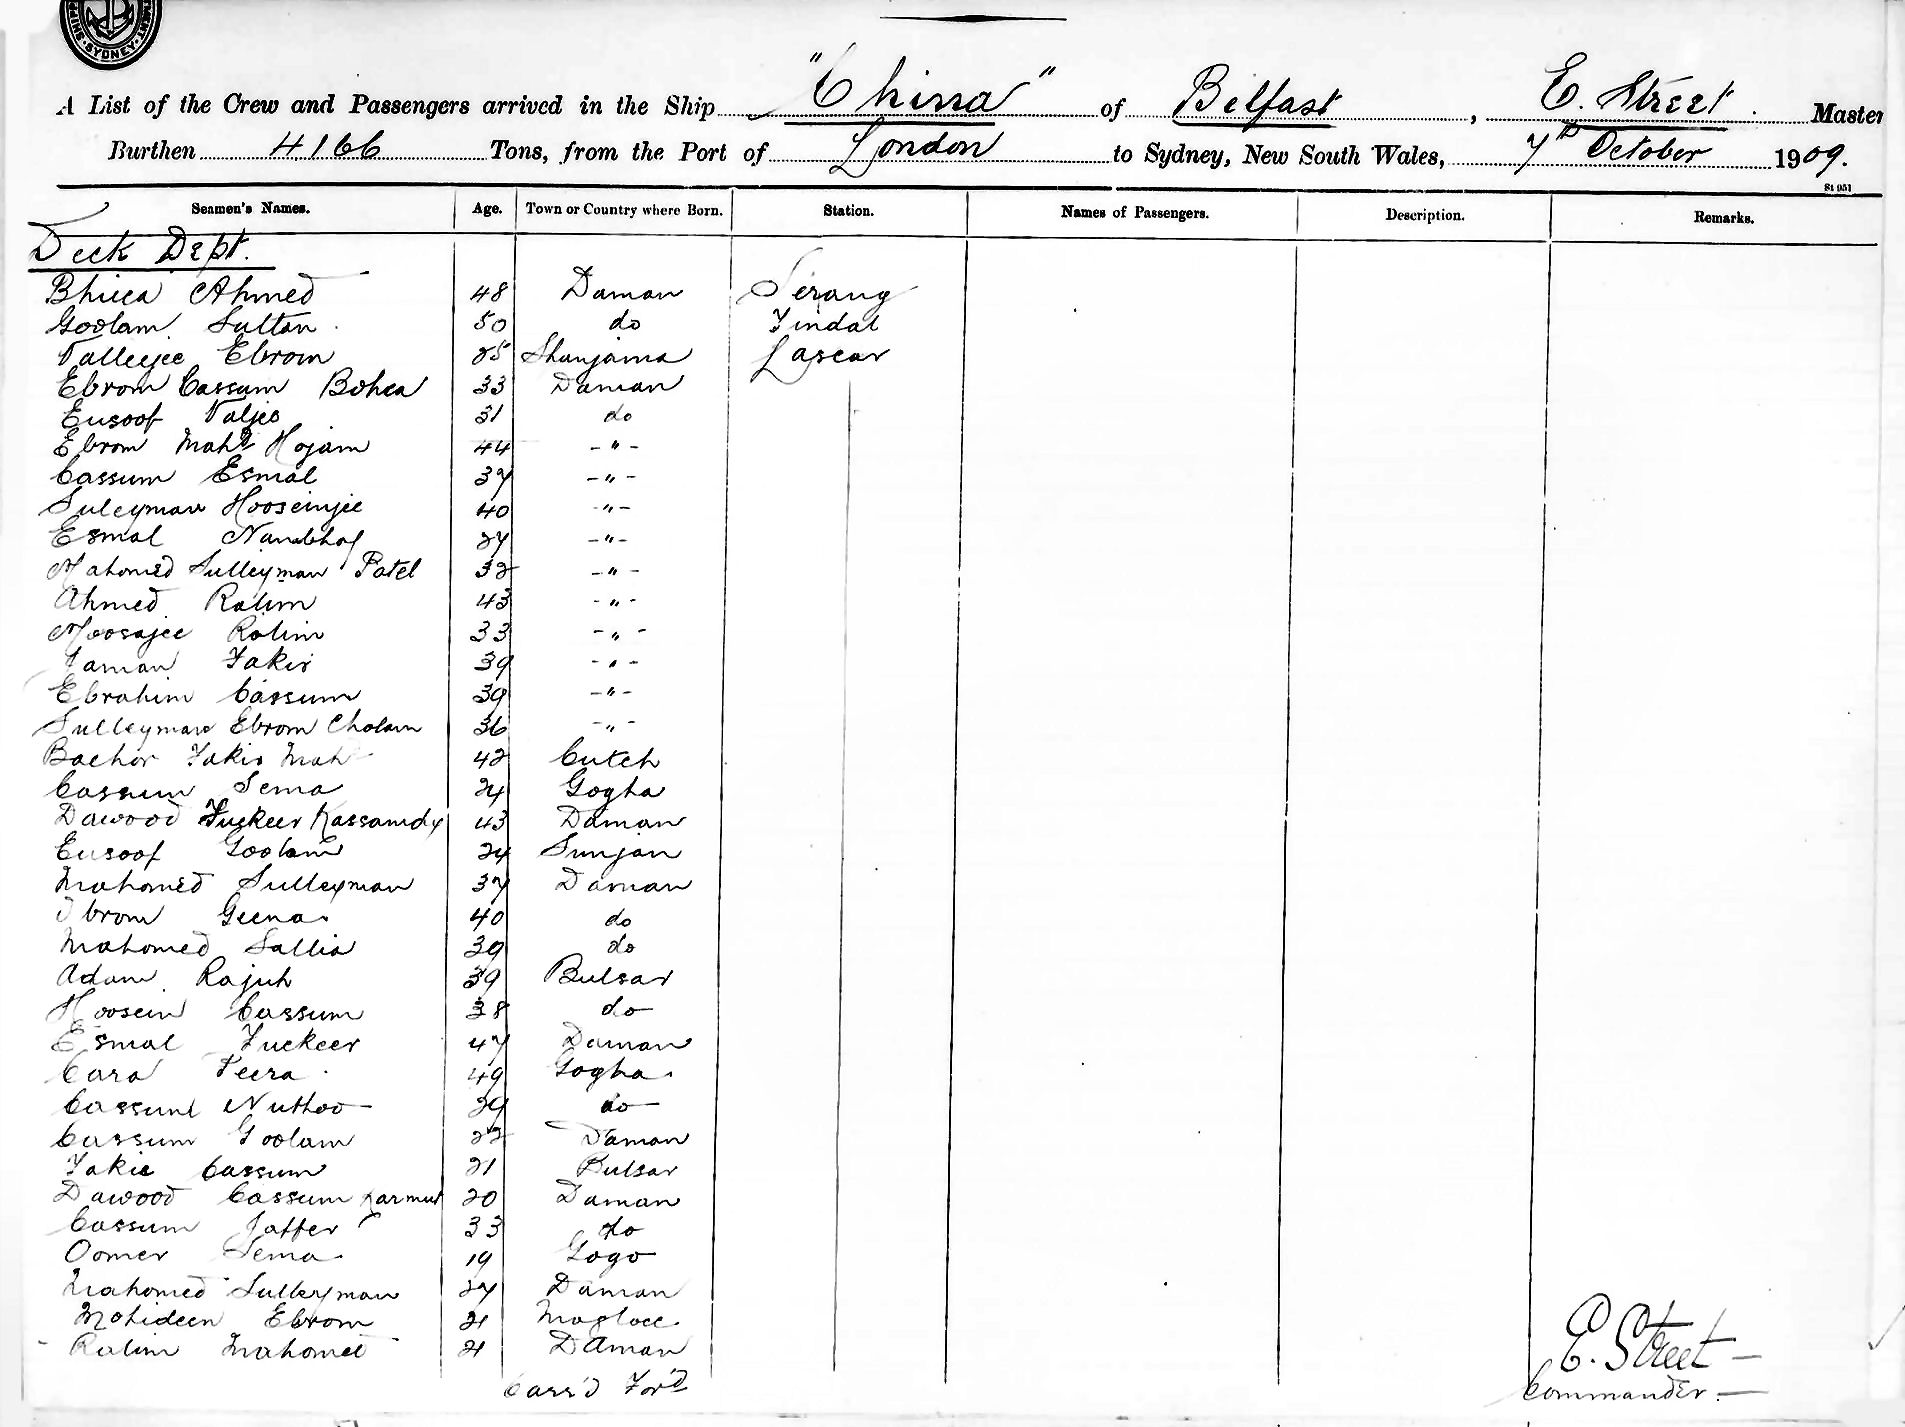 SYDNEY
A List of the Crew and Passengers arrived in the Ship "China" of Belfast, E. Street. Master
Burthen 4166 Tons, from the Port of London to Sydney, New South Wales, 7th October 1909.
St 951
Seamen's Names. Age. Town or Country where Born. Station. Names of Passengers. Description. Remarks.
Deck Dept.
Bhica Ahmed 48 Daman Serang
Goolam Sultan 50 do Tindal
Valleejee Ebrom 25 Shunjama Lascar
Ebrom Cassum Bohea 33 Daman
Eusoof Valjee 31 do
Ebrom Mahd Hojam 44 - " -
Cassum Esmal 37 - " -
Suleyman Hooseinjee 40 - " -
Esmal 27 - " -
Mahomed Sulleyman Patel 32 - " -
Ahmed Rahim 43 - " -
Moosajee Rahim 33 - " -
Jaman Fakir 39 - " -
Ebrahim Cassum 39 - " -
Sulleyman Ebrom Cholam 36 - " -
Bachor Fakir Mahd 42 Cutch
Cassum Sema 24 Gogha
Dawood Fuckeer 43 Daman
Eusoof Goolam 24 Sunjan
Mahomed Sulleyman 37 Daman
Ibrom Geena 40 do
Mahomed Sallia 39 do
Adam Rajuh 39 Bulsar
Hoosein Cassum 38 do
Esmal Fuckeer 47 Daman
Cara Veera 49 Gogha
Cassum Nuthoo 29 do
Cassum Goolam 22 Daman
Fakie Cassum 21 Bulsar
Dawood Cassum 20 Daman
Cassum Jaffer 33 do
Oomer Sema 19 Gogo
Mahomed Sulleyman 27 Daman
Mohideen Ebrom 21
Rahim Mahomed 21 Daman
Carr'd For'd
E. Street
Commander